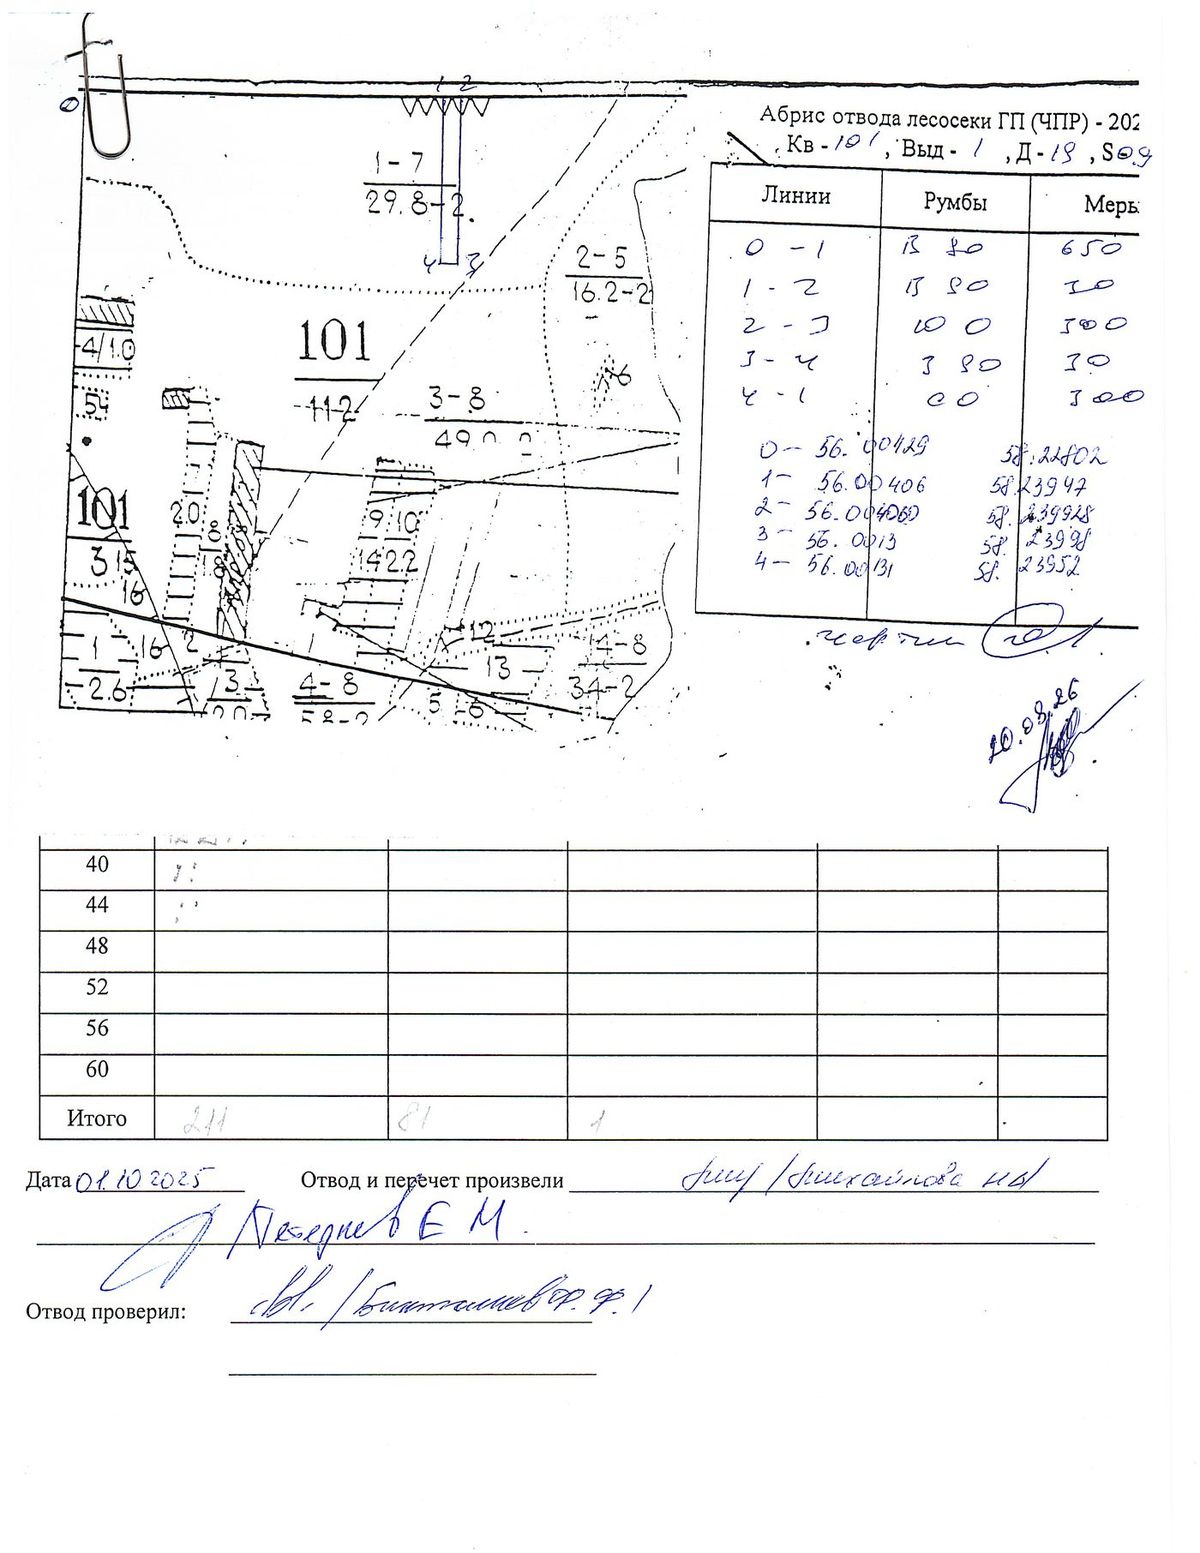 0
1 2
1-7
29.8-2
4 3
2-5
16.2-2
101
112
3-8
49
4/1.0
54
6
101
3
15
16
20
8
18
9 10
14 22
12
1
2.6
16
2
3
4-8
58-2
13
5
6
4-8
34-2
Абрис отвода лесосеки ГП (ЧПР) - 202
Кв - 101, Выд - 1, Д - 19, S 0.9
Линии Румбы Меры
0 - 1 В 90 650
1 - 2 В 90 30
2 - 3 Ю 0 300
3 - 4 З 90 30
4 - 1 С 0 300
0 - 56.00429 58.22802
1 - 56.00406 58.23947
2 - 56.004060 58.239928
3 - 56.0013 58.23998
4 - 56.00131 58.23952
20.03.26
40
44
48
52
56
60
Итого 211 81 1
Дата 01.10 2025 Отвод и перечет произвели Михайлова
Е М.
Отвод проверил: Ф. Ф.